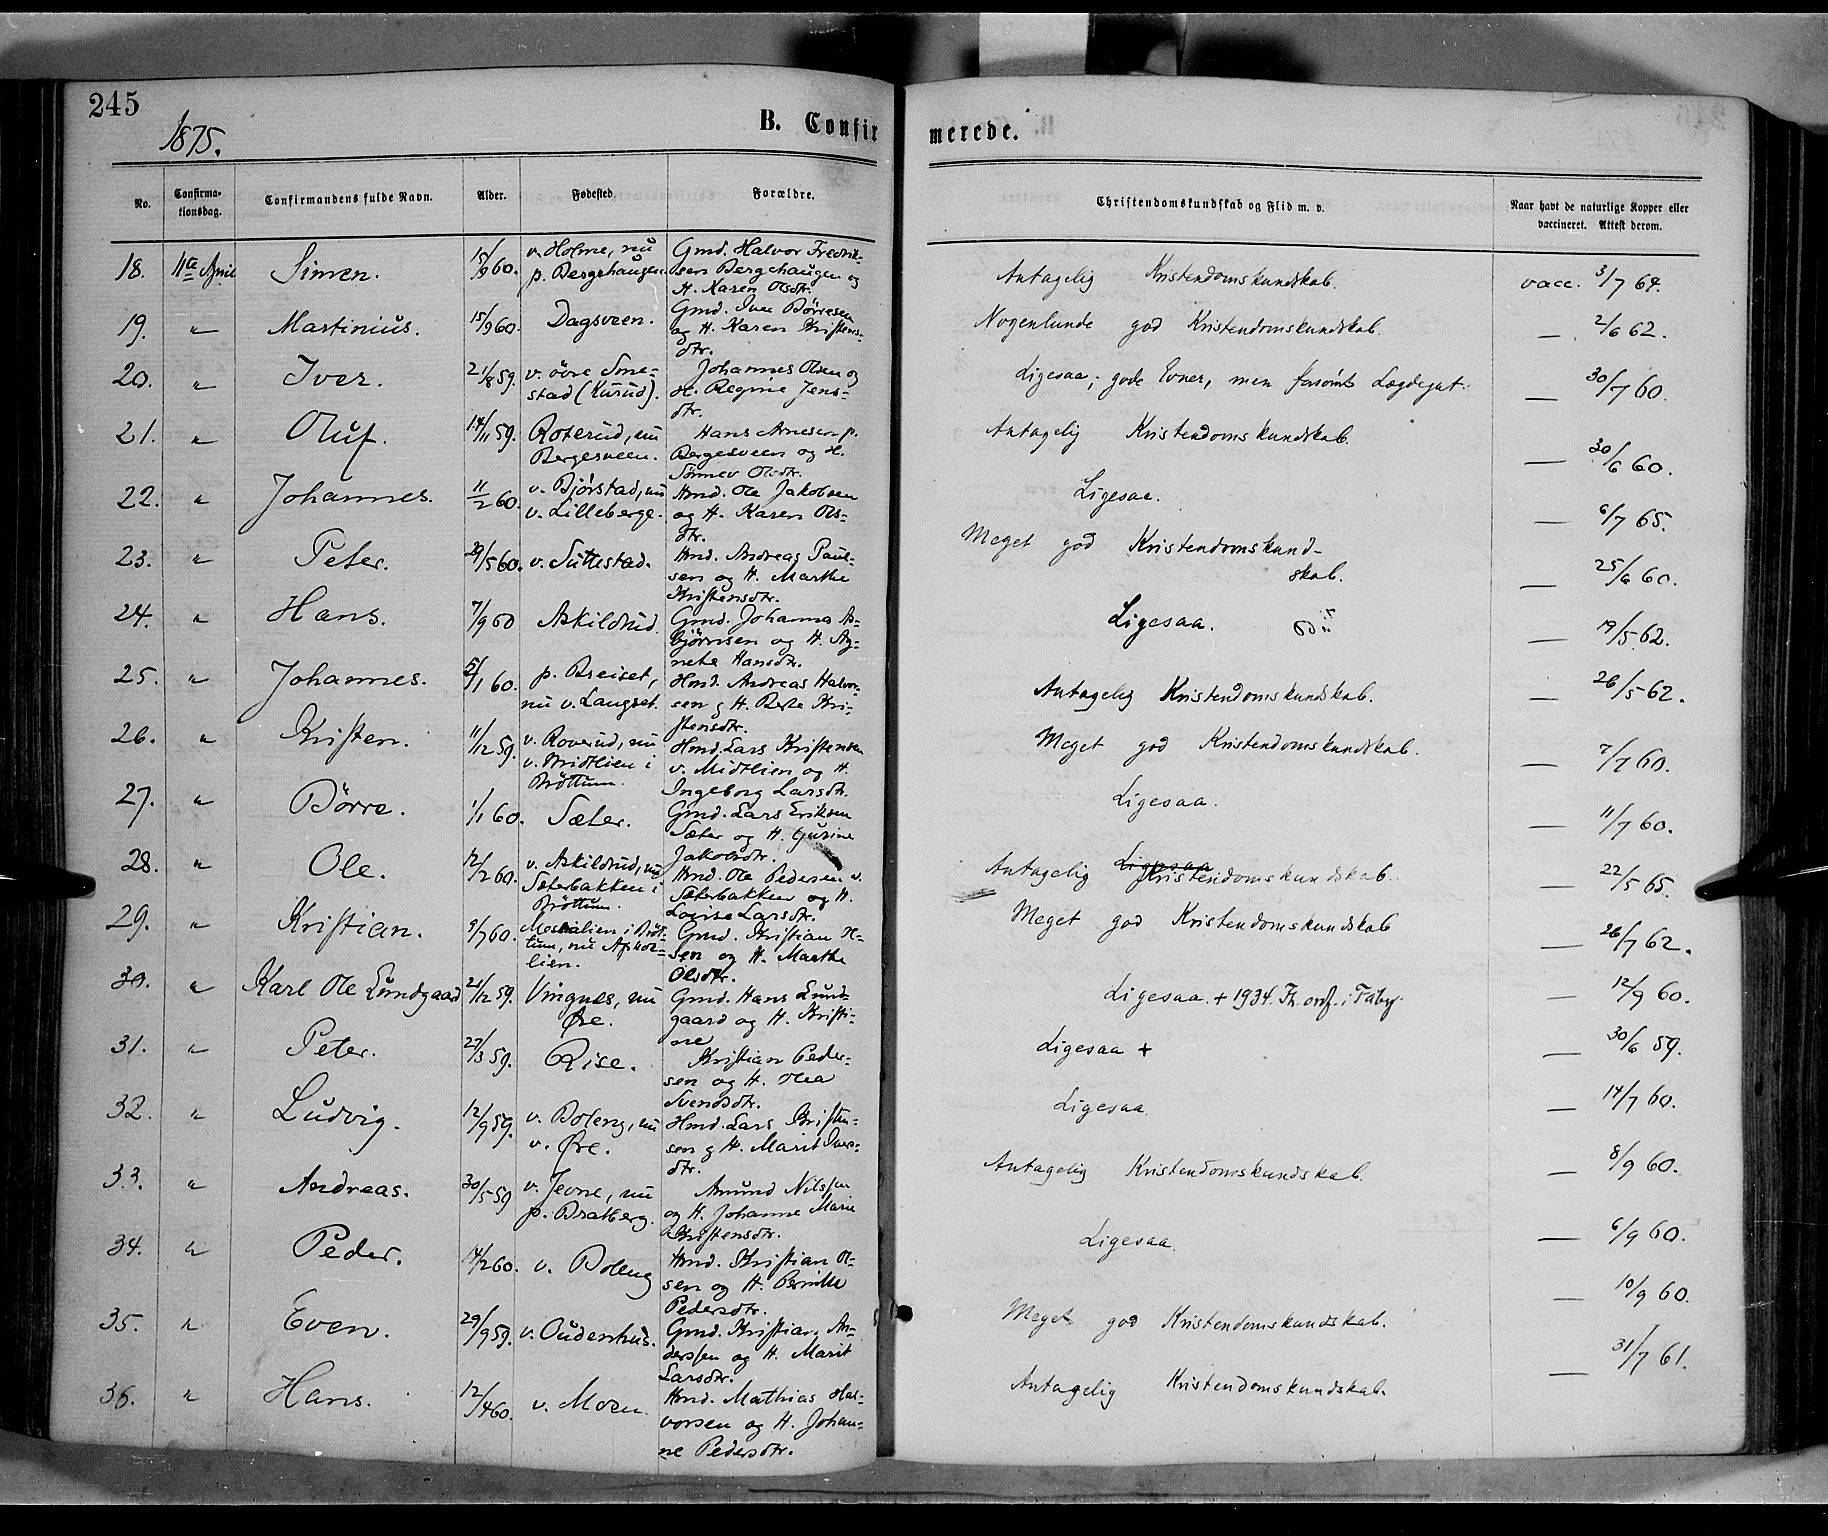 245
1875.
B. Confirmerede.
No. Confirmationsdag. Confirmandens fulde Navn. Alder. Fødested. Forældre. Christendomskundskab og Flid m. v. Naar havt de naturlige Kopper eller vaccineret. Attest derom.
18. 11te April Simen. 15/9 60. v. Holme, nu p. Berghaugen. Gmd. Halvor Fredriksen Berghaugen og H. Karen Olsdtr. Antagelig Kristendomskundskab. vacc. 3/7 64.
19. " Martinius. 15/9 60. Dagsveen. Gmd. Iver Börresen og H. Karen Kristensdtr. Nogenlunde god Kristendomskundskab. — 2/6 62.
20. " Iver. 21/8 59. v. övre Smestad (Kurud). Johannes Olsen og H. Regine Jensdtr. Ligesaa; gode Evner, men forsömt Lægdegut. — 30/7 60.
21. " Oluf. 14/11 59. Roterud, nu Bergesveen. Hans Arnesen p. Bergesveen og H. Sönnev Olsdtr. Antagelig Kristendomskundskab. — 30/6 60.
22. " Johannes. 11/2 60. v. Bjørstad, nu v. Lilleberge. Hmd. Ole Jakobsen og H. Karen Olsdtr. Ligesaa. — 6/7 65.
23. " Peter. 29/5 60. v. Suttestad. Hmd. Andreas Paulsen og H. Marthe Kristensdtr. Meget god Kristendomskundskab. — 25/6 60.
24. " Hans. 7/9 60 Askildrud. Gmd. Johannes Asbjörnsen og H. Agnete Hansdtr. Ligesaa. — 19/5 62.
25. " Johannes. 5/1 60. p. Breiset, nu v. Langset. Hmd. Andreas Halvorsen g H. Berte Kristensdtr. Antagelig Kristendomskundskab. — 26/5 62.
26. " Kristen. 11/12 59. v. Roverud, nu v. Midtlien i Bröttum. Hmd. Lars Kristensen v. Midtlien og H. Ingeborg Larsdtr. Meget god Kristendomskundskab. — 7/7 60.
27. " Börre. 1/1 60. Sæter. Gmd. Lars Eriksen Sæter og H. Gurine Jakobsdtr. Ligesaa. — 11/7 60.
28. " Ole. 12/2 60. v. Askildrud, nu Sæterbakken i Bröttum. Hmd. Ole Pedersen v. Sæterbakken og H. Lovise Larsdtr. Antagelig Ligesaa Kristendomskundskab. — 22/5 65.
29. " Kristian. 9/7 60. Messalien i Bröttum, nu lien. Gmd. Kristian Olsen og H. Marthe Olsdtr. Meget god Kristendomskundskab — 26/7 62.
30. " Karl Ole Lundgaad 21/12 59. Vingnes, nu Øre. Gmd. Hans Lundgaard og H. Kristine Ligesaa. + 1934. i Faby. — 12/9 60.
31. " Peter. 27/3 59. Rise. Kristian Pedersen og H. Olea Svendsdtr. Ligesaa + — 30/6 59.
32. " Ludvig. 12/9 59. v. Boleng, nu v. Øre. Hmd. Lars Kristensen g H. Marit Iversdtr. Ligesaa — 14/7 60.
33. " Andreas. 30/5 59 v. Jevne, nu p. Bratberg. Amund Nilssen og H. Johanne Marie Kristensdtr. Antagelig Kristendomskundskab. — 8/9 60.
34. " Peder. 14/2 60. v. Boleng Hmd. Kristian Olsen og H. Pernille Pedersdtr. Ligesaa. — 6/9 60.
35. " Even. 29/9 59. v. Oudenhus. Gmd. Kristian Anderssen og H. Marit Larsdtr. Meget god Kristendomskundskab. — 10/9 60.
36. " Hans. 12/4 60. v. Moen. Hmd. Mathias Halvorsen og H. Johanne Pedersdtr. Antagelig Kristendomskundskab. — 31/7 61.